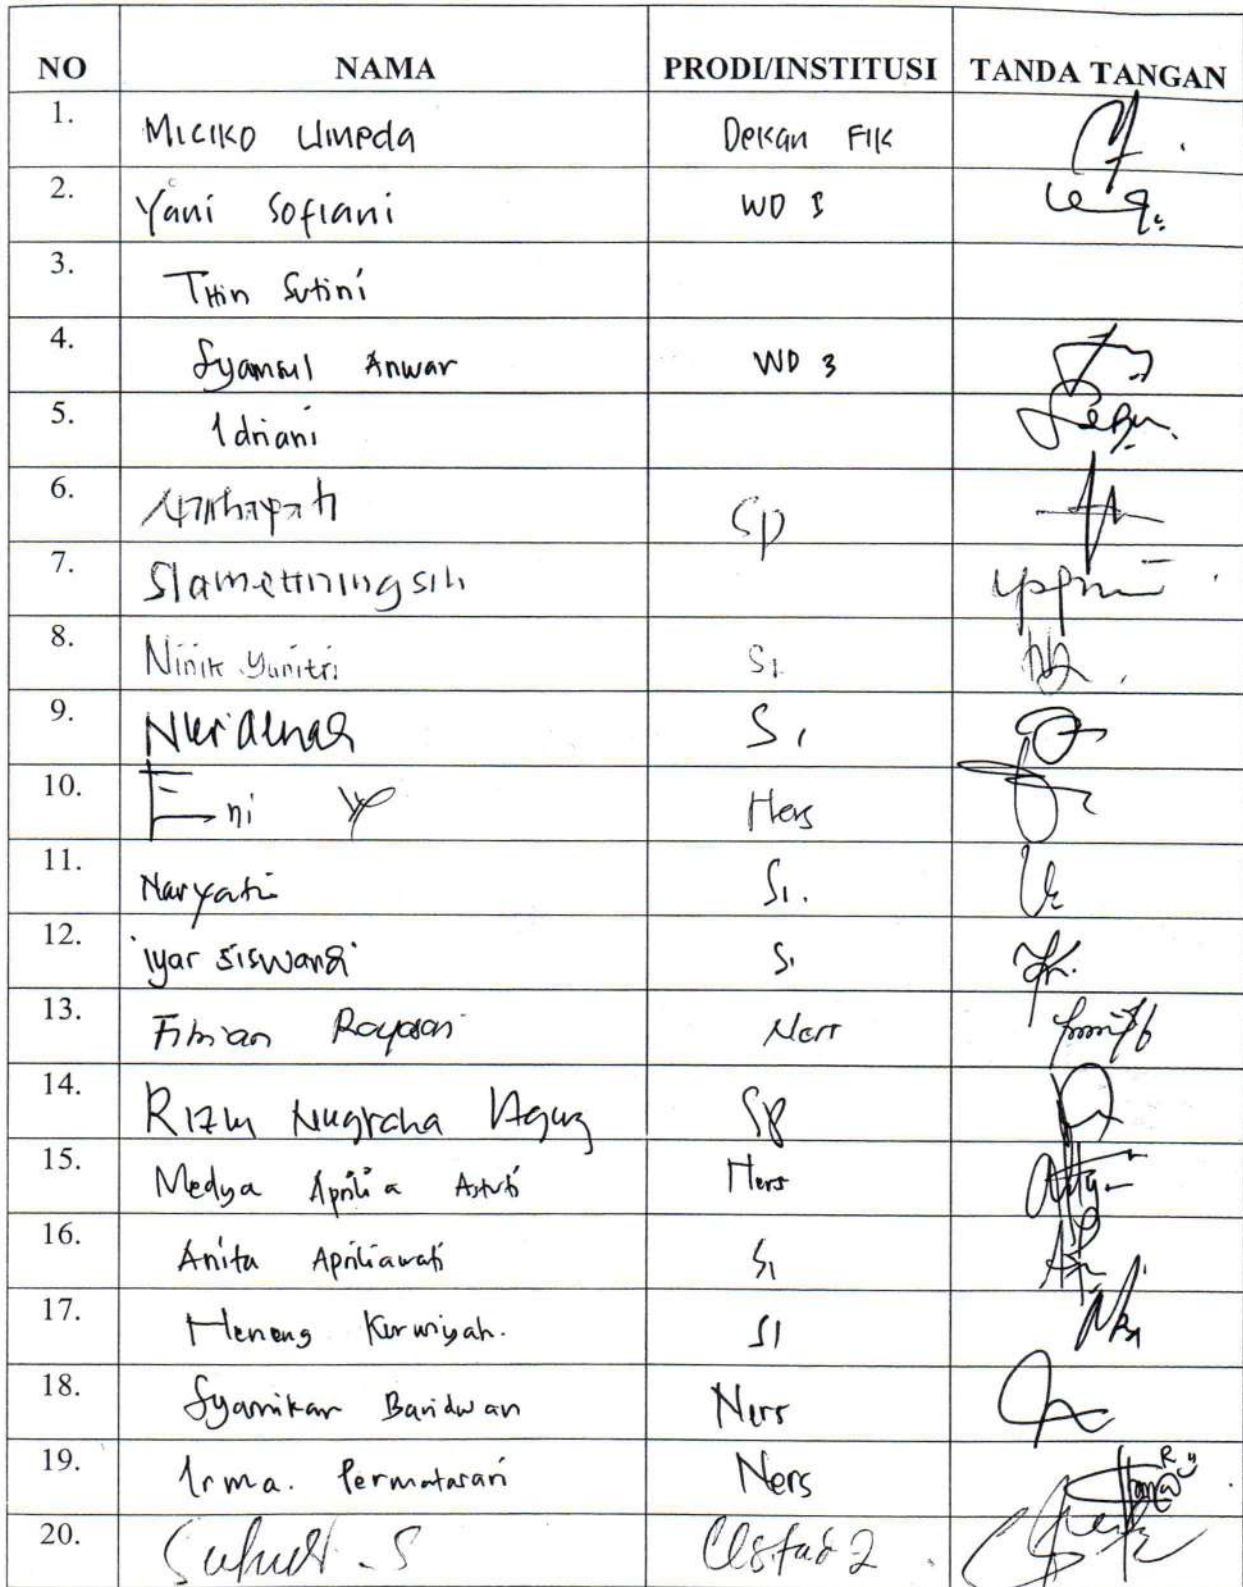 NO NAMA PRODI/INSTITUSI TANDA TANGAN
1. MICIKO Umeda Dekan FIK
2. Yani Sofiani WD 1
3. Titin Sutini
4. Syamsul Anwar WD 3
5. Idriani
6. Sp
7. Slamettiningsih
8. Ninik Yunitri S1
9. S1
10. Eni Ners
11. Naryati S1.
12. iyar siswandi S1
13. Fitrian Rayasari Ners
14. Rizki Nugraha Agung Sp
15. Medya Aprilia Astuti Ners
16. Anita Apriliawati S1
17. Neneng Kurwiyah. S1
18. Syamikar Baridwan Ners
19. Irma. Permatasari Ners
20. S